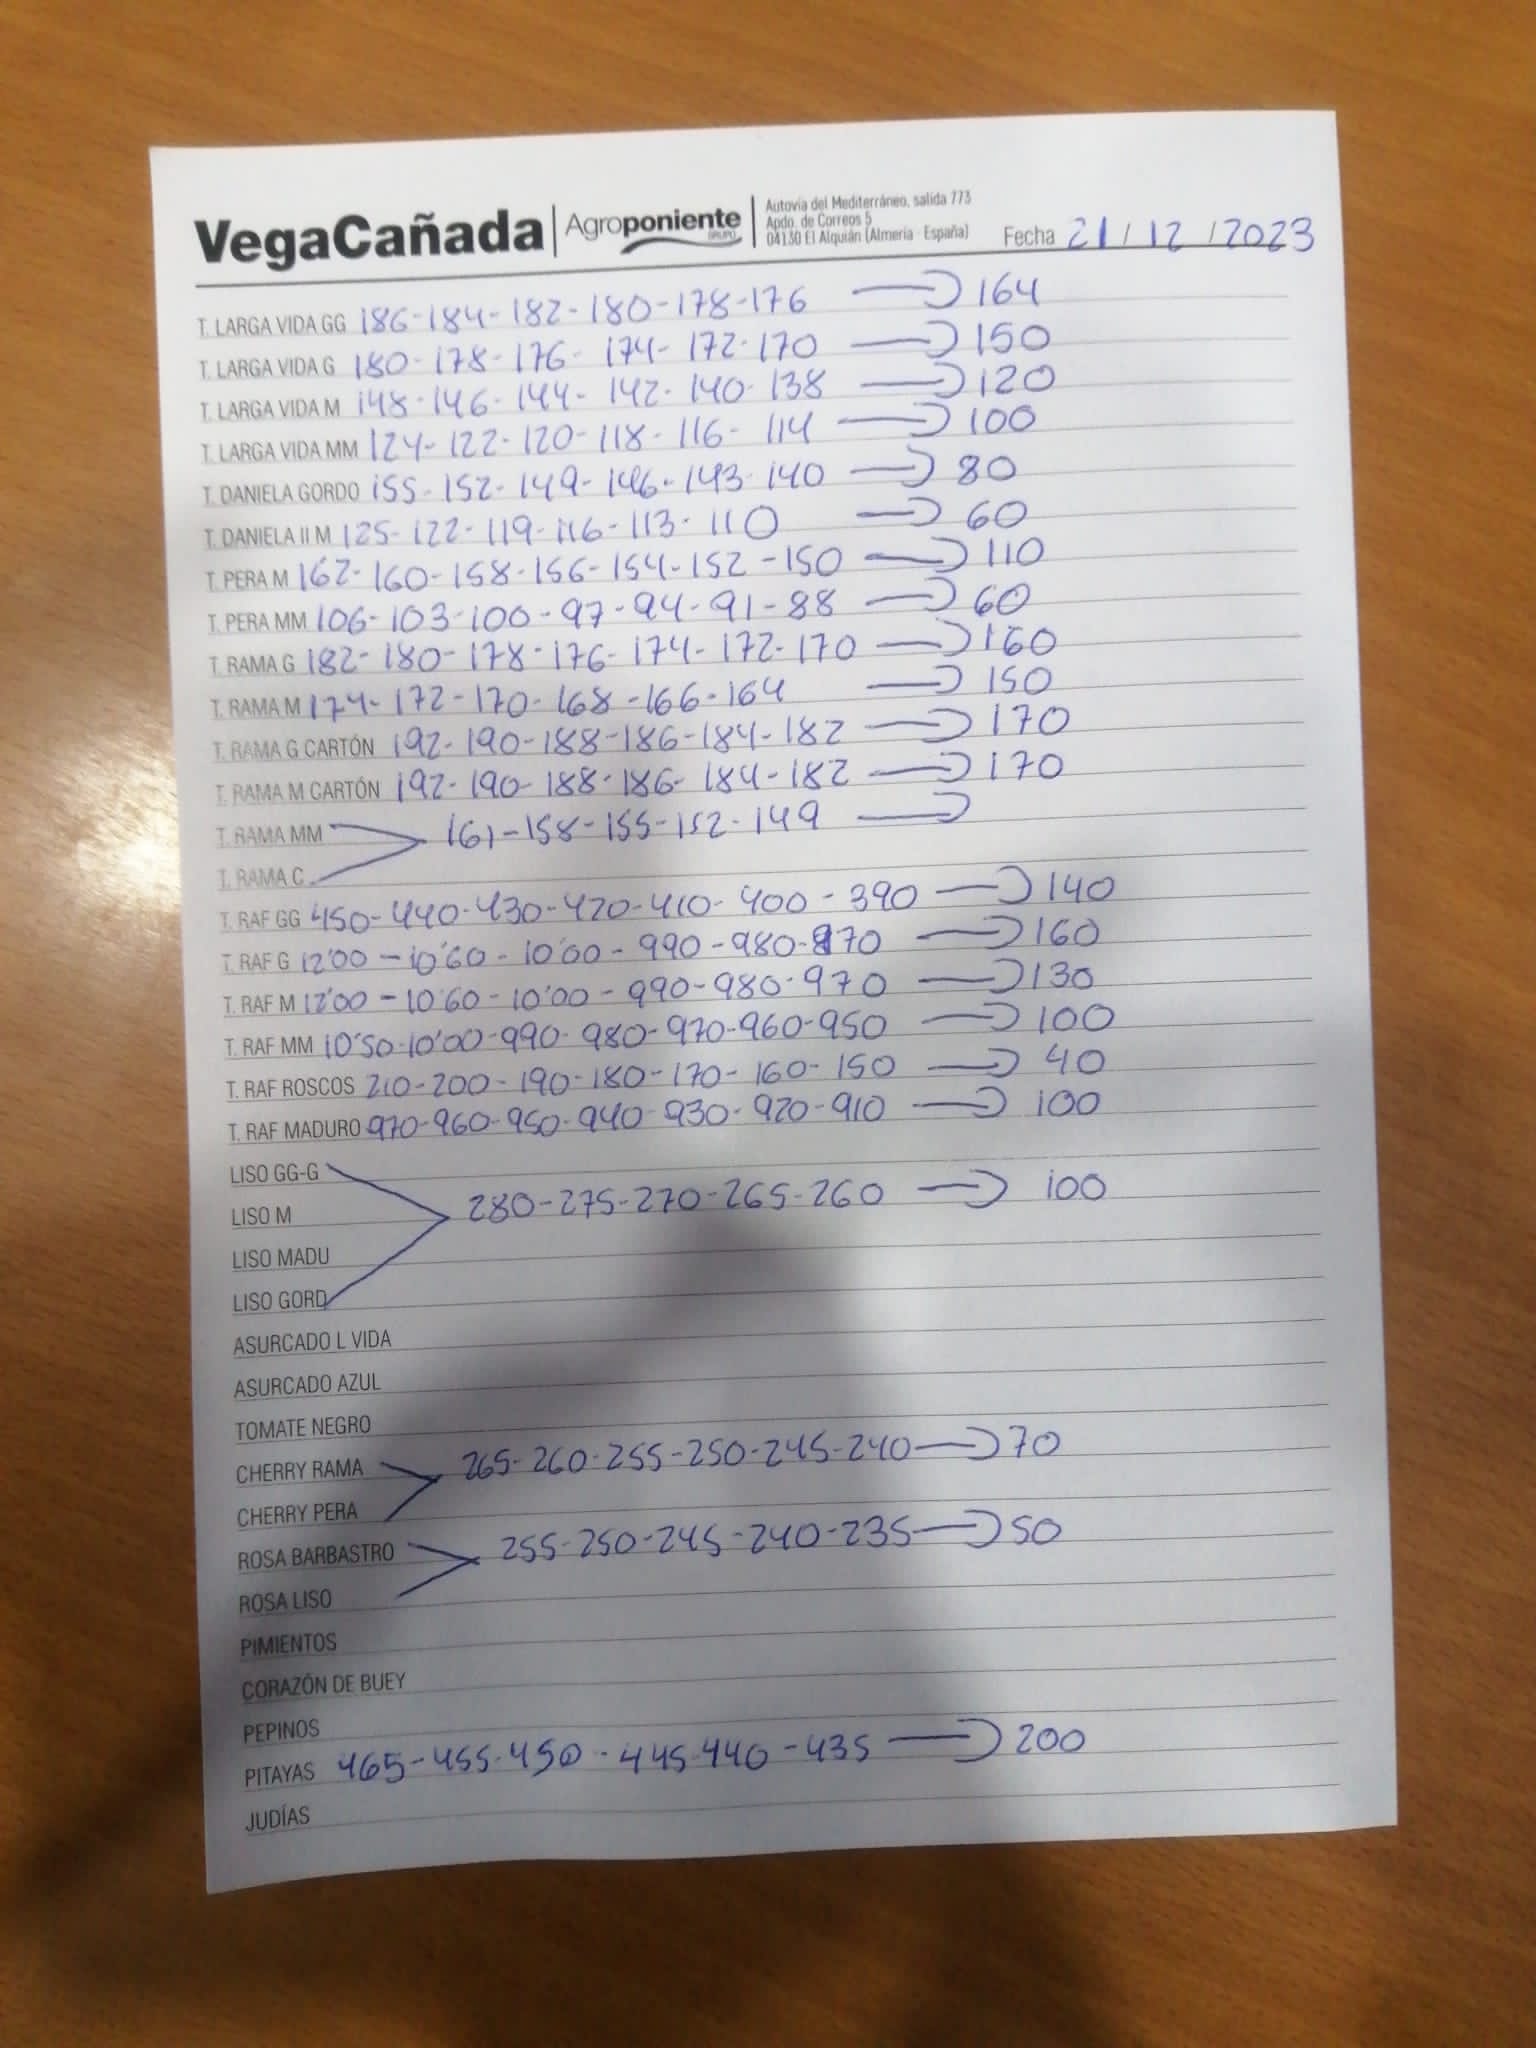 VegaCañada | Agroponiente GRUPO
Autovía del Mediterráneo, salida 773
Apdo. de Correos 5
04130 El Alquián (Almería - España)
Fecha 21/12/2023
T. LARGA VIDA GG 186-184-182-180-178-176 164
T. LARGA VIDA G 180-178-176-174-172-170 150
T. LARGA VIDA M 148-146-144-142-140-138 120
T. LARGA VIDA MM 124-122-120-118-116-114 100
T. DANIELA GORDO 155-152-149-146-143-140 80
T. DANIELA II M 125-122-119-116-113-110 60
T. PERA M 162-160-158-156-154-152-150 110
T. PERA MM 106-103-100-97-94-91-88 60
T. RAMA G 182-180-178-176-174-172-170 160
T. RAMA M 174-172-170-168-166-164 150
T. RAMA G CARTÓN 192-190-188-186-184-182 170
T. RAMA M CARTÓN 192-190-188-186-184-182 170
T. RAMA MM 161-158-155-152-149
T. RAMA C
T. RAF GG 450-440-430-420-410-400-390 140
T. RAF G 12'00-10'60-10'00-990-980-970 160
T. RAF M 12'00-10'60-10'00-990-980-970 130
T. RAF MM 10'50-10'00-990-980-970-960-950 100
T. RAF ROSCOS 210-200-190-180-170-160-150 40
T. RAF MADURO 970-960-950-940-930-920-910 100
LISO GG-G
LISO M 280-275-270-265-260 100
LISO MADU
LISO GORD
ASURCADO L VIDA
ASURCADO AZUL
TOMATE NEGRO
CHERRY RAMA 265-260-255-250-245-240 70
CHERRY PERA
ROSA BARBASTRO 255-250-245-240-235 50
ROSA LISO
PIMIENTOS
CORAZÓN DE BUEY
PEPINOS
PITAYAS 465-455-450-445-440-435 200
JUDÍAS